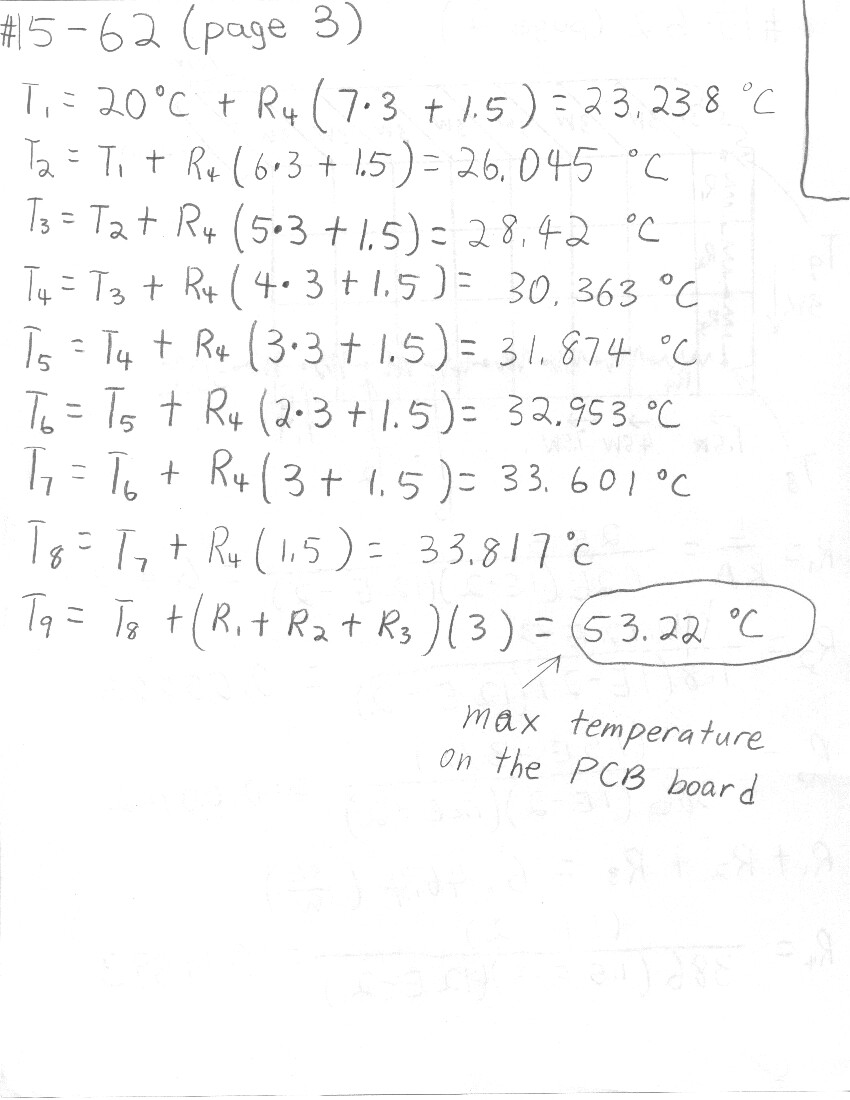 #15-62 (page 3)
T₁ = 20°C + R₄(7·3 + 1.5) = 23.238 °C
T₂ = T₁ + R₄(6·3 + 1.5) = 26.045 °C
T₃ = T₂ + R₄(5·3 + 1.5) = 28.42 °C
T₄ = T₃ + R₄(4·3 + 1.5) = 30.363 °C
T₅ = T₄ + R₄(3·3 + 1.5) = 31.874 °C
T₆ = T₅ + R₄(2·3 + 1.5) = 32.953 °C
T₇ = T₆ + R₄(3 + 1.5) = 33.601 °C
T₈ = T₇ + R₄(1.5) = 33.817 °C
T₉ = T₈ + (R₁ + R₂ + R₃)(3) = 53.22 °C
max temperature
on the PCB board